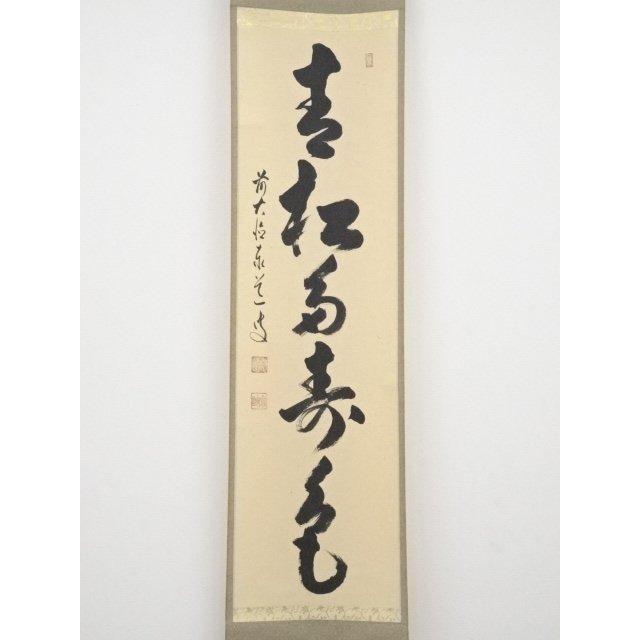 青松多寿色
前大徳泰道一叟